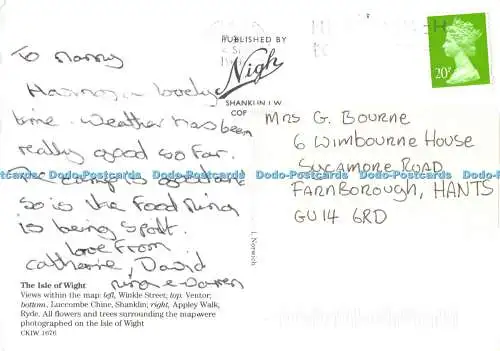 To Nanny
Having a lovely
time. Weather has been
really good so far.
The camp is good and
so is the food Nina
is being spoilt.
love from
Catherine, David
Nina & Darren
PUBLISHED BY
Nigh
SHANKLIN I.W.
COP
20P
Mrs G. BOURNE
6 WIMBOURNE HOUSE
SYCAMORE ROAD
FARNBOROUGH, HANTS
GU14 6RD
Dodo-Postcards Dodo-Postcards Dodo-Postcards Dodo-Postcards Dodo-Postcards Dodo-Postcards
The Isle of Wight
Views within the map: left, Winkle Street; top, Ventor;
bottom, Luccombe Chine, Shanklin; right, Appley Walk,
Ryde. All flowers and trees surrounding the mapwere
photographed on the Isle of Wight
CKIW 1676